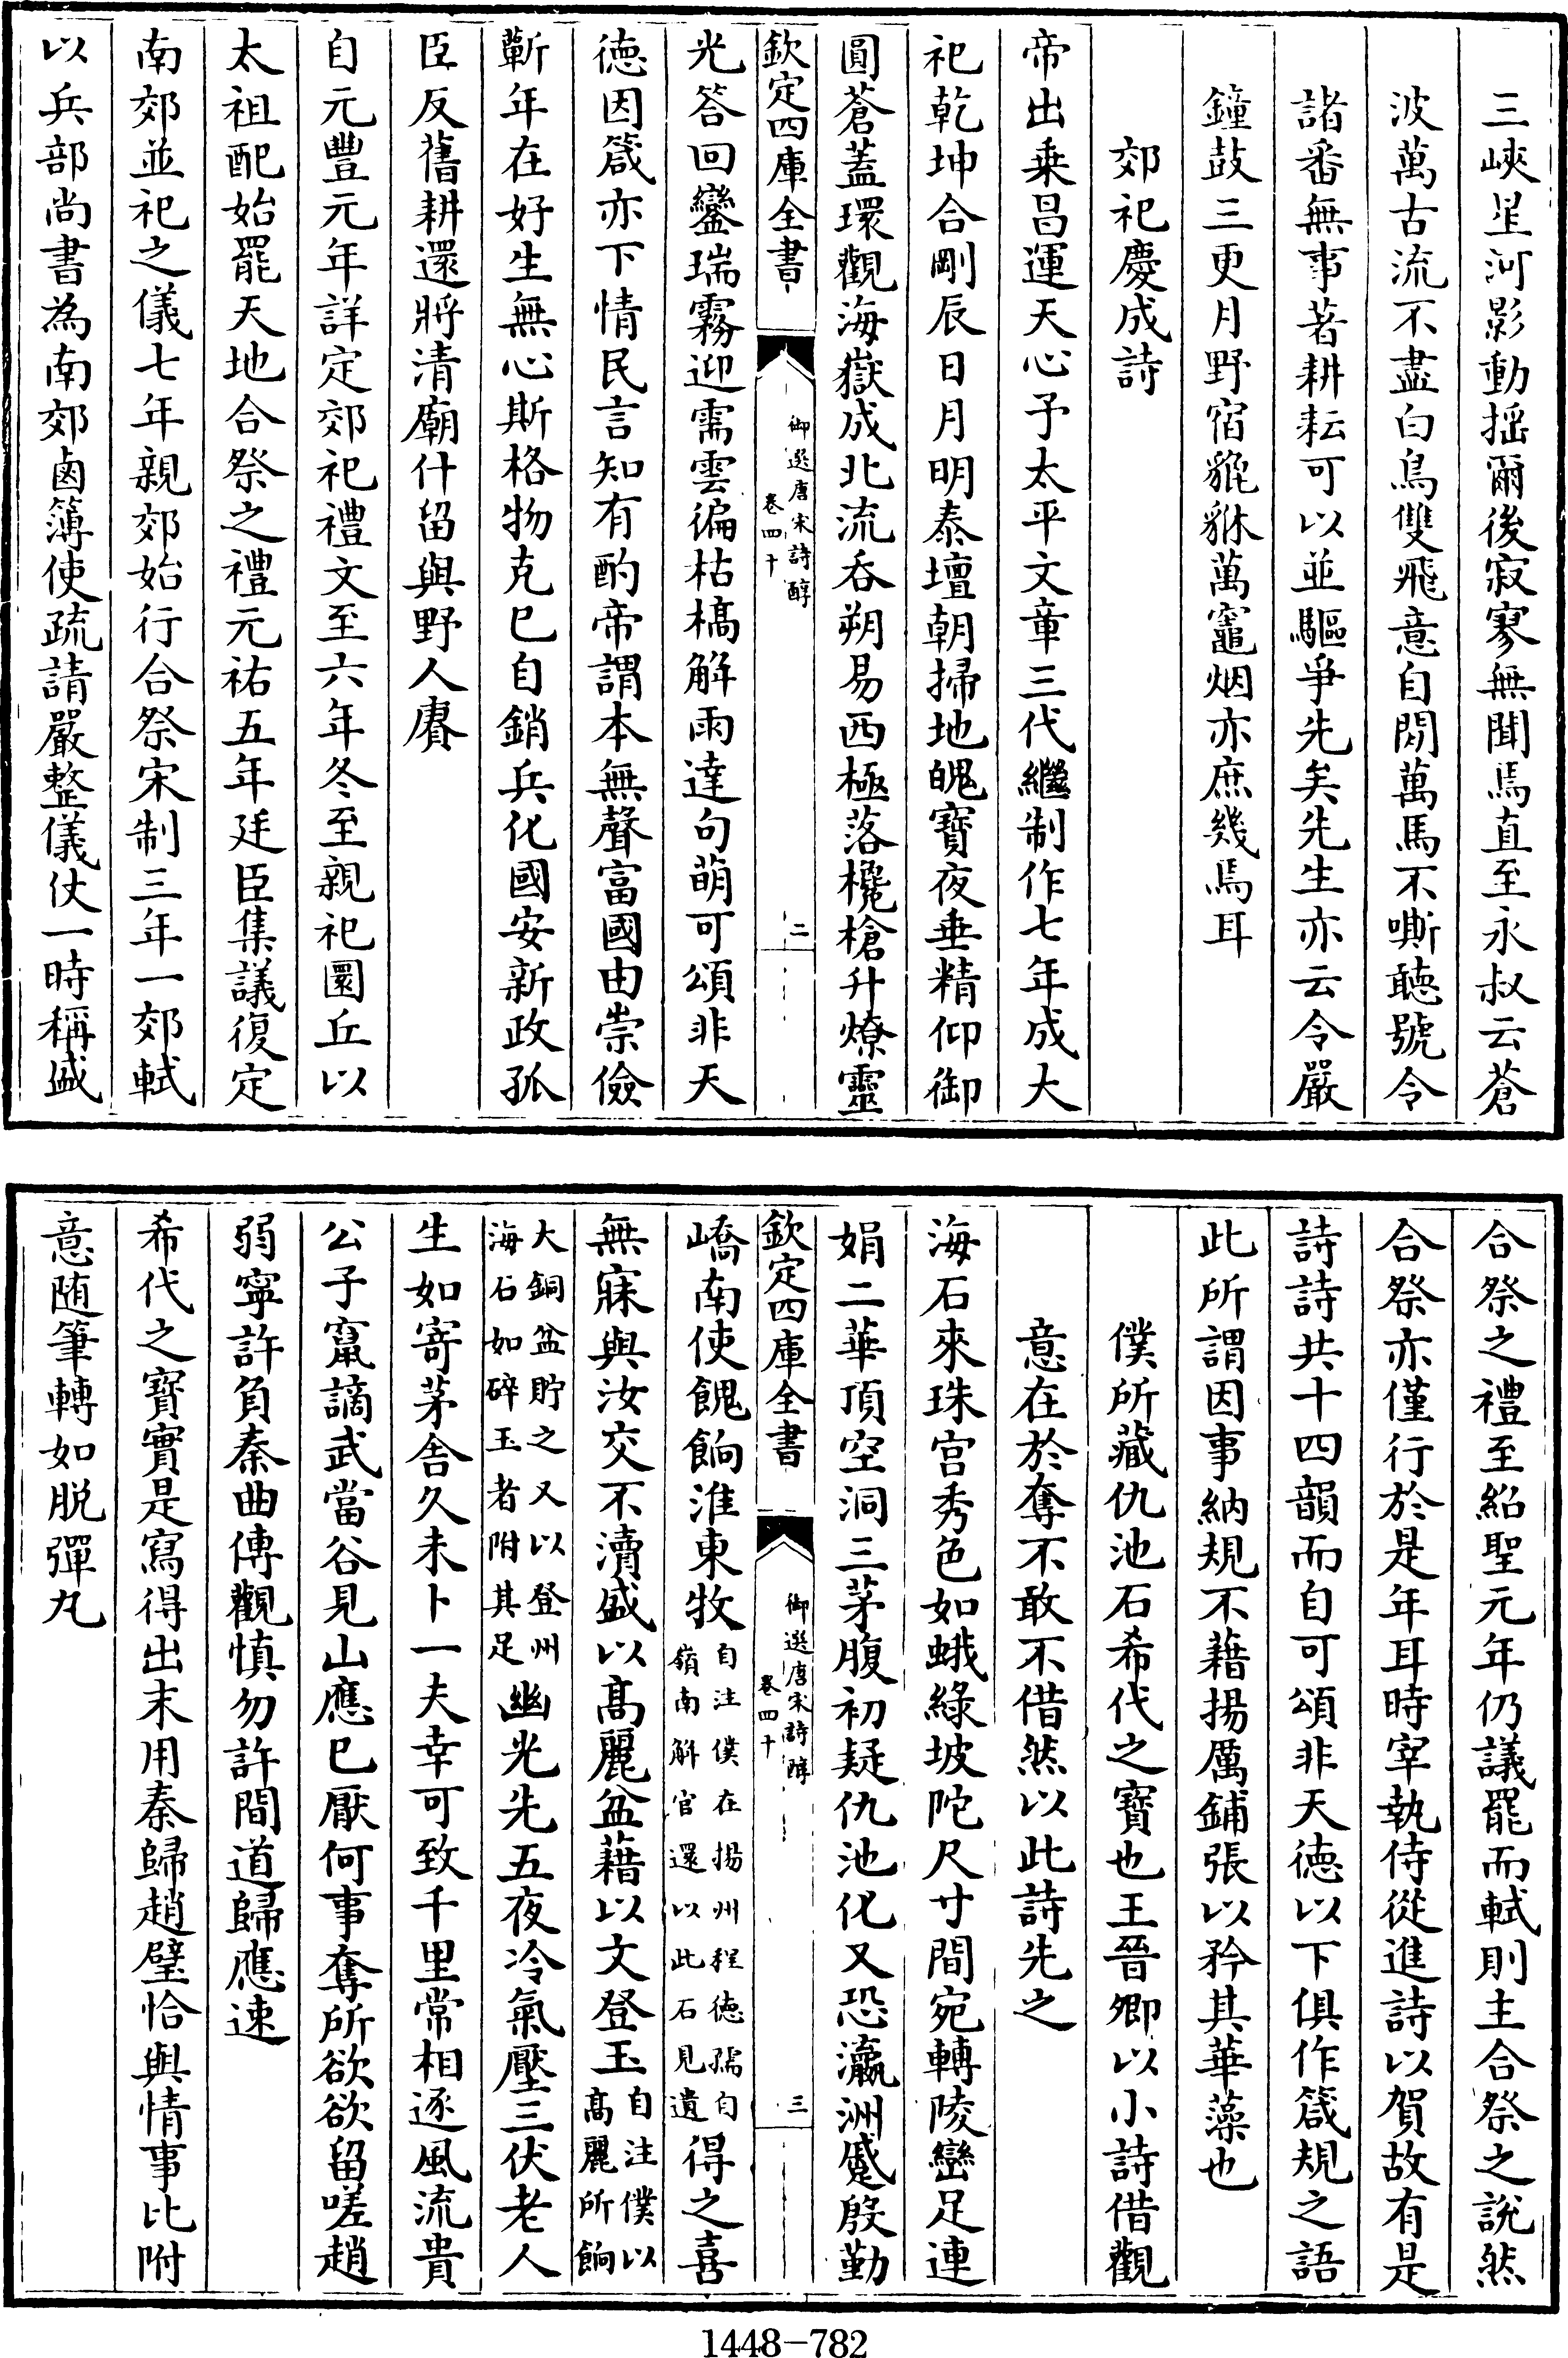 三峽星河影動揺爾後寂寥無聞焉直至永叔云蒼
波萬古流不盡白鳥雙飛意自閒萬馬不嘶聽號令
諸番無事著耕耘可以並驅爭先矣先生亦云令嚴
鐘鼓三更月野宿貔貅萬竈烟亦庶幾焉耳
郊祀慶成詩
帝出乗昌運天心予太平文章三代繼制作七年成大
祀乾坤合剛辰日月明泰壇朝掃地魄寶夜垂精仰御
圓蒼蓋環觀海嶽成北流吞朔易西極落欃槍升燎靈
欽定四庫全書
御選唐宋詩醇
卷四十
二
光答回鑾瑞霧迎需雲徧枯槁解雨達句萌可頌非天
德因箴亦下情民言知有酌帝謂本無聲富國由崇儉
蘄年在好生無心斯格物克已自銷兵化國安新政孤
臣反舊耕還將清廟什留與野人賡
自元豐元年詳定郊祀禮文至六年冬至親祀圜丘以
太祖配始罷天地合祭之禮元祐五年廷臣集議復定
南郊並祀之儀七年親郊始行合祭宋制三年一郊軾
以兵部尚書為南郊鹵簿使疏請嚴整儀仗一時稱盛
合祭之禮至紹聖元年仍議罷而軾則主合祭之說然
合祭亦僅行於是年耳時宰執侍從進詩以賀故有是
詩詩共十四韻而自可頌非天德以下俱作箴規之語
此所謂因事納規不藉揚厲鋪張以矜其華藻也
僕所藏仇池石希代之寶也王晉卿以小詩借觀
意在於奪不敢不借然以此詩先之
海石來珠宮秀色如蛾綠坡陀尺寸間宛轉陵巒足連
娟二華頂空洞三茅腹初疑仇池化又恐瀛洲蹙殷勤
欽定四庫全書
御選唐宋詩醇
卷四十
三
嶠南使餽餉淮東牧自注僕在揚州程德孺自嶺南解官還以此石見遺得之喜
無寐與汝交不瀆盛以髙麗盆藉以文登玉自注僕以髙麗所餉
大銅盆貯之又以登州海石如碎玉者附其足幽光先五夜冷氣壓三伏老人
生如寄茅舍久未卜一夫幸可致千里常相逐風流貴
公子竄謫武當谷見山應已厭何事奪所欲欲留嗟趙
弱寧許負秦曲傳觀慎勿許間道歸應速
希代之寶實是寫得出末用秦歸趙璧恰與情事比附
意随筆轉如脱彈丸
1448-782